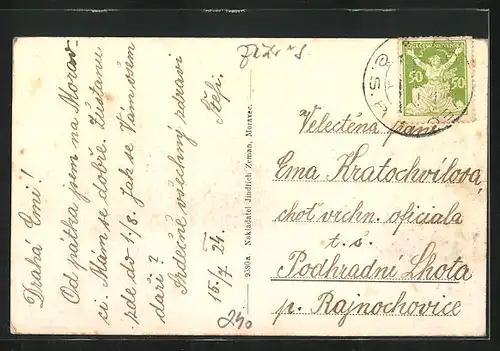 Drahá Emi!
Od pátka jsem na Morav-
ci. Mám se dobře. Zůstanu
zde do 1./8. Jak se Vám všem
daří?
Srdečně všechny zdraví
Štefi.
15./7. 24.
9530a. Nakladatel Jindřich Zeman, Moravec.
50 50
Velectěna paní
Ema Kratochvílová,
choť vrchn. oficiala
t. s.
Podhradní Lhota
p. Rajnochovice
240